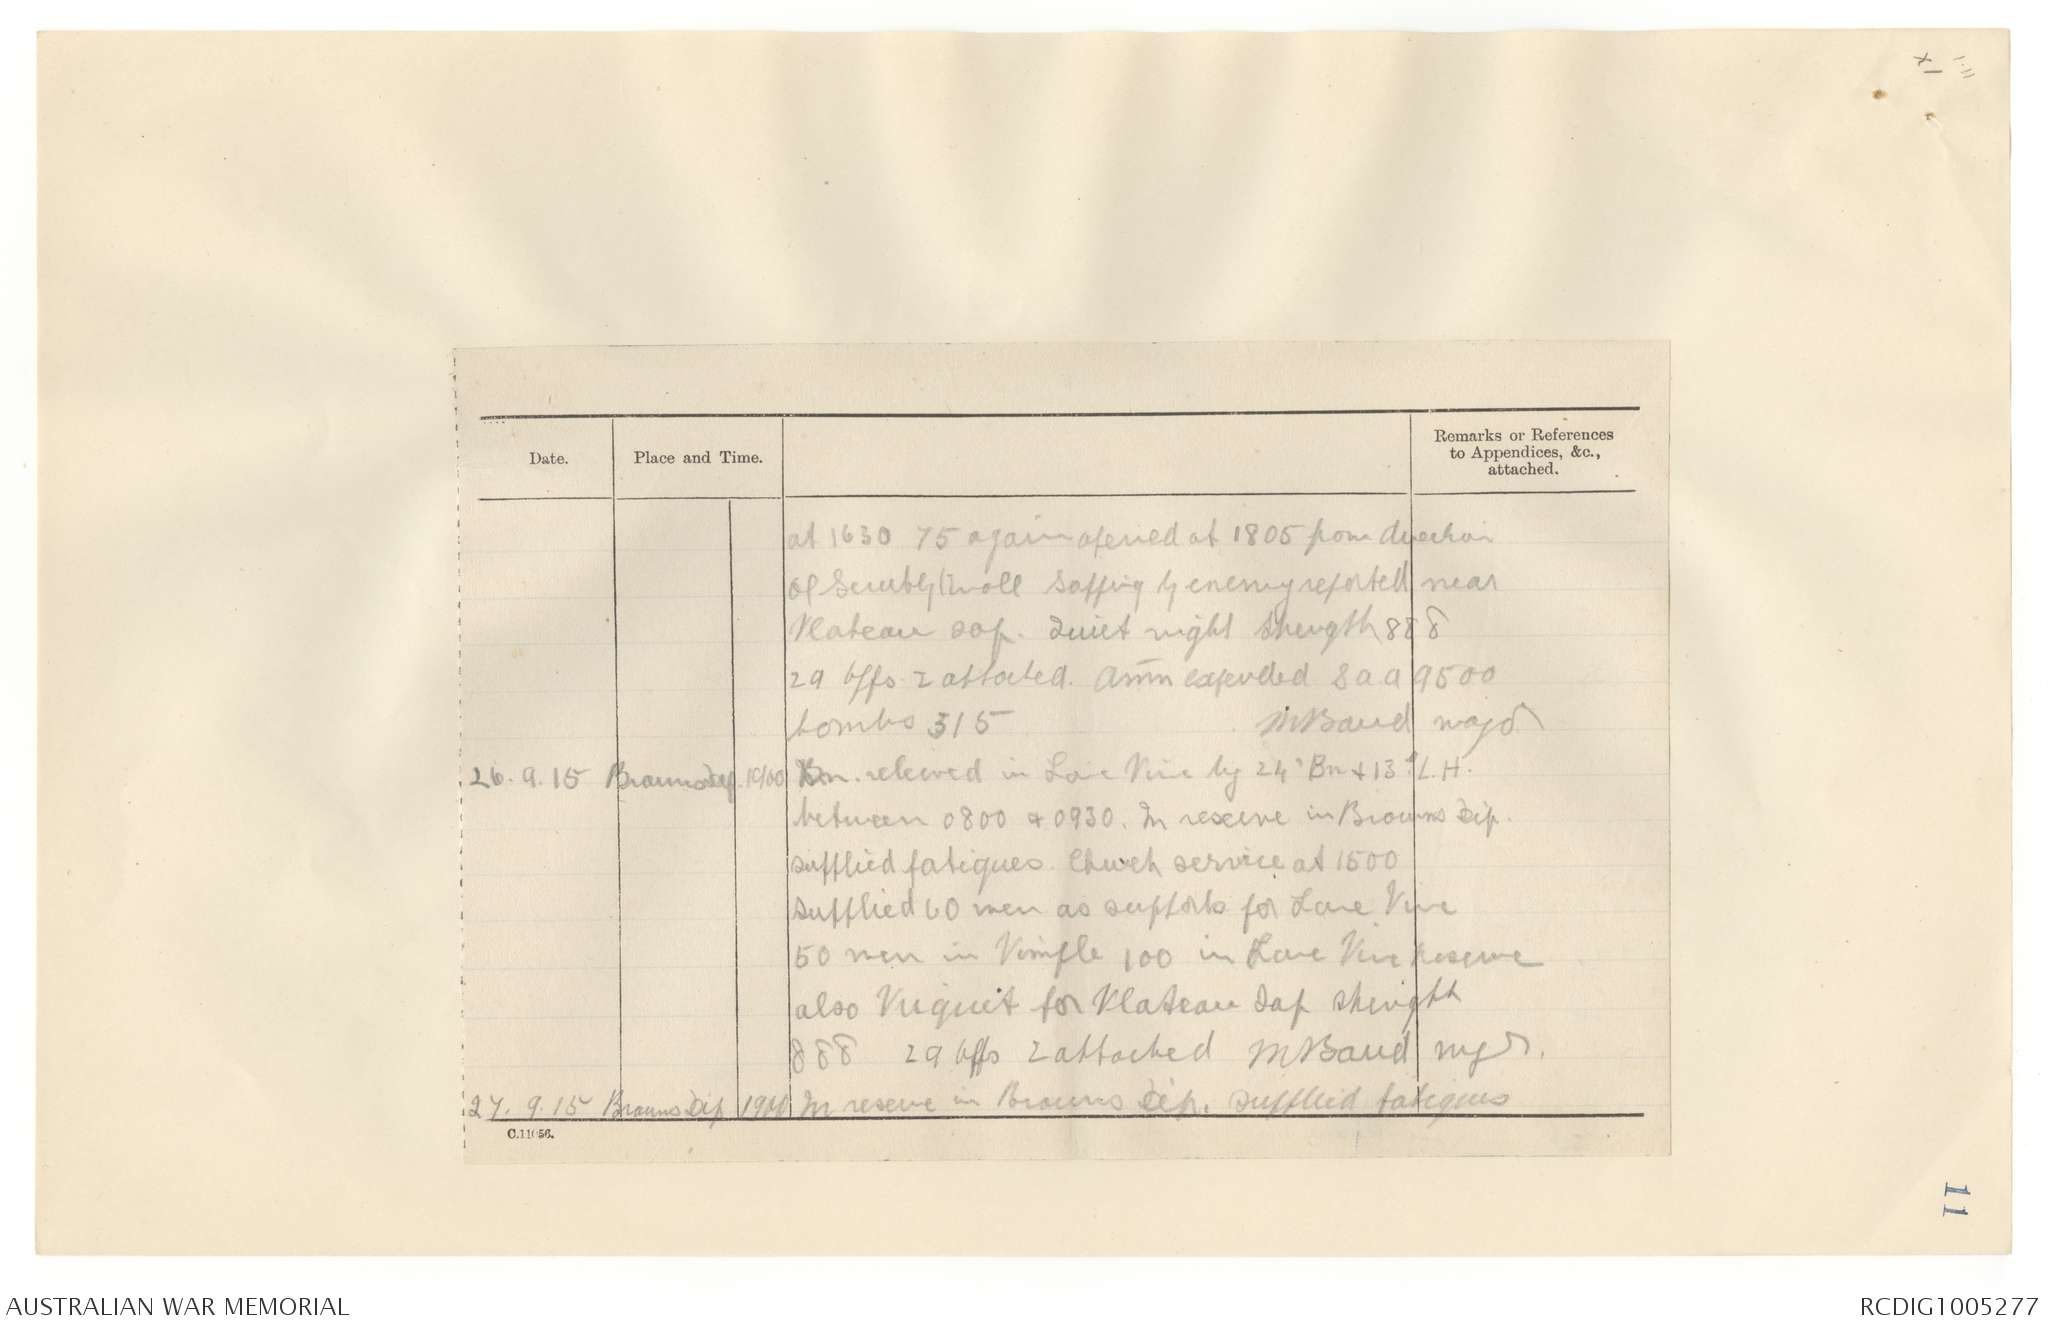 Date.
Place and Time.
Remarks or References
to Appendices, &c.,
attached.
at 1630 75 again opened at 1805 from direction
of Scrubby Knoll Sapping by enemy reported near
Plateau Sap. Quiet night Strength 888
29 Offs 2 attached. Amm expended S a a 9500
bombs 315 Major
26.9.15 Browns Dip. 1900 Bn. relieved in Lone Pine by 24th Bn + 13th L.H.
between 0800 & 0930. In reserve in Browns Dip.
supplied fatigues. Church service at 1500
Supplied 60 men as supports for Lone Pine
50 men in Pimple 100 in Lone Pine Reserve
also Picquet for Plateau Sap Strength
888 29 Offs 2 attached Major.
27.9.15 Browns Dip 1900 In reserve in Browns Dip. Supplied fatigues
C.11056.
11
AUSTRALIAN WAR MEMORIAL
RCDIG1005277